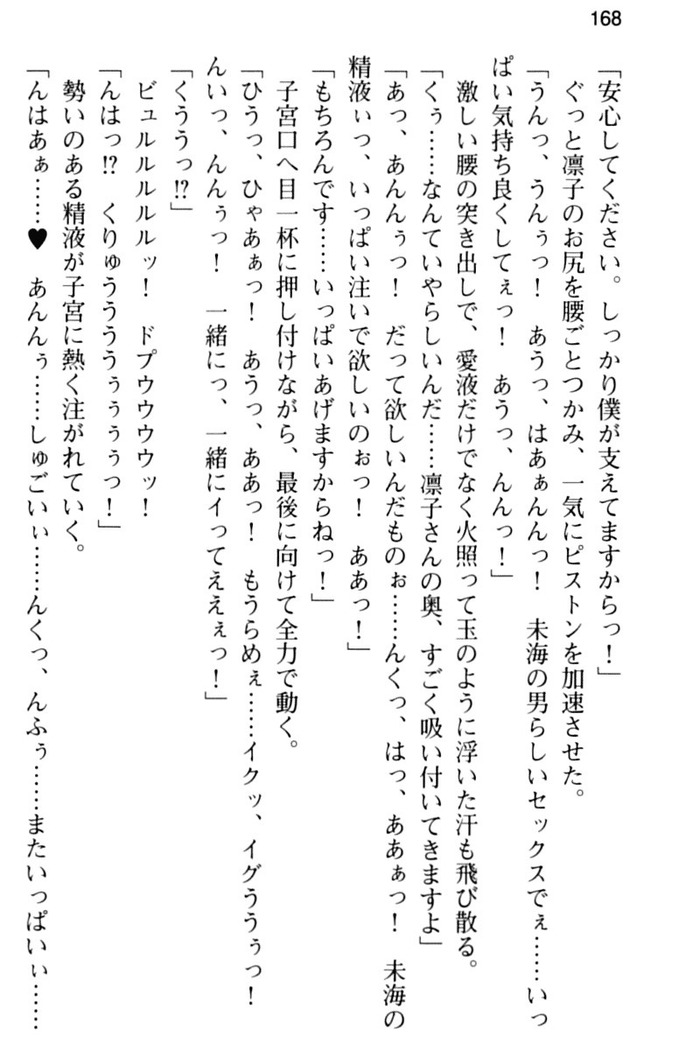 168
「安心してください。しっかり僕が支えてますからっ！」
　ぐっと凛子のお尻を腰ごとつかみ、一気にピストンを加速させた。
「うんっ、うんぅっ！　あうっ、はあぁんんっ！　未海の男らしいセックスでぇ……いっ
ぱい気持ち良くしてぇっ！　あうっ、んんっ！」
　激しい腰の突き出しで、愛液だけでなく火照って玉のように浮いた汗も飛び散る。
「くぅ……なんていやらしいんだ……凛子さんの奥、すごく吸い付いてきますよ」
「あっ、あんんぅっ！　だって欲しいんだものぉ……んくっ、はっ、ああぁっ！　未海の
精液ぃっ、いっぱい注いで欲しいのぉっ！　ああっ！」
「もちろんです……いっぱいあげますからねっ！」
　子宮口へ目一杯に押し付けながら、最後に向けて全力で動く。
「ひうっ、ひゃあぁっ！　あうっ、ああっ！　もうらめぇ……イクッ、イグううぅっ！
んいっ、んんぅっ！　一緒にっ、一緒にイってええぇっ！」
「くううっ!?」
　ビュルルルルルッ！　ドプウウウウッ！
「んはっ!?　くりゅううううぅぅぅぅっ！」
　勢いのある精液が子宮に熱く注がれていく。
「んはあぁ……♥　あんんぅ……しゅごいぃ……んくっ、んふぅ……またいっぱいぃ……